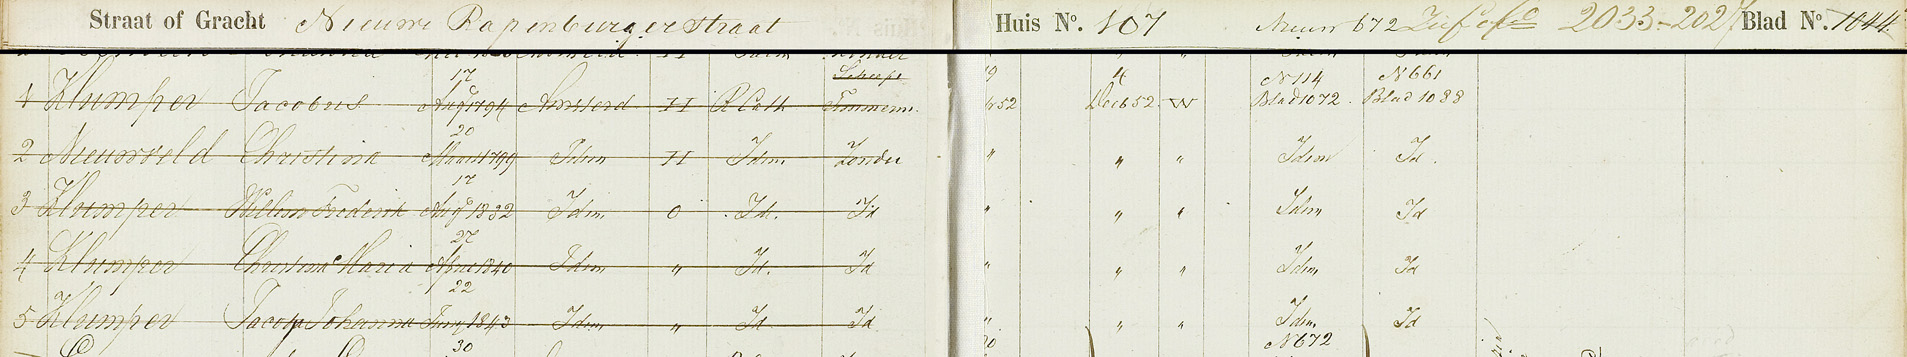 Straat of Gracht Nieuwe Rapenburgerstraat Huis No. 107 Nieuw 672 2033-2027 Blad No. 1044
Scheeps
17 4 N114 N661
1 Klumper Jacobus Aug 1794 Amsterd H R Cath Timmerm. 52 Dec 52 W Blad 1072. Blad 1088
20
2 Nieuwveld Christina Maart 1799 Idem H Idem Zonder " " " Idem Id.
17
3 Klumper Willem Frederik Aug 1832 Idem O Id. Id " " " Idem Id
27
4 Klumper Christina Maria April 1840 Idem " Id. Id " " " Idem Id
22
5 Klumper Jacoba Johanna Juny 1843 Idem " Id Id " " " Idem Id
30 N672